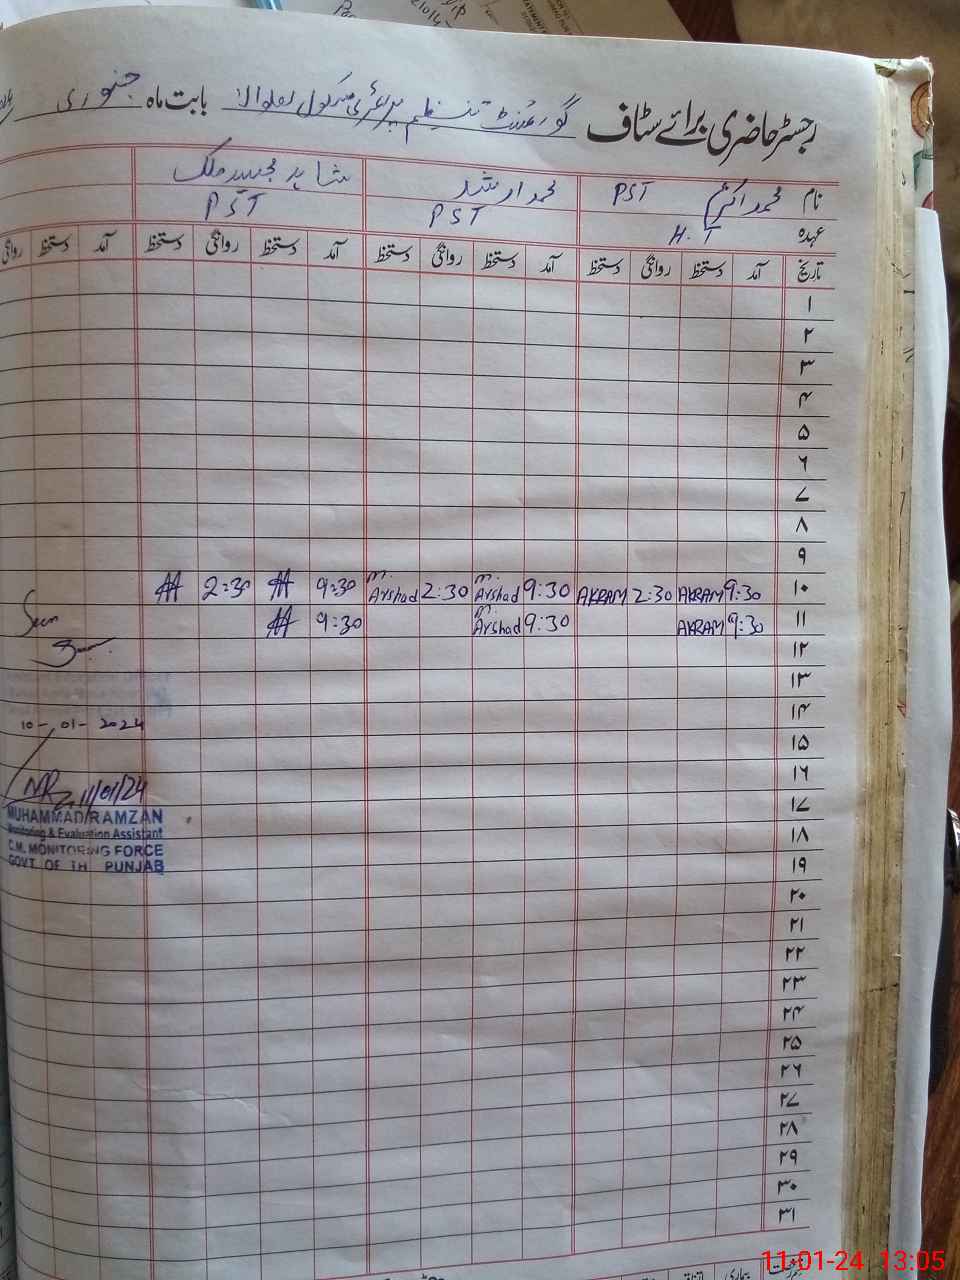 رجسٹر حاضری برائے سٹاف گورنمنٹ تنظیم پرائمری سکول بابت ماہ جنوری
نام محمد اکرم PST محمد ارشد شاہد مجید ملک
عہدہ H.T PST PST
تاریخ آمد دستخط روانگی دستخط آمد دستخط روانگی دستخط آمد دستخط روانگی دستخط آمد دستخط روانگی
۱
۲
۳
۴
۵
۶
۷
۸
۹
۱۰ 9:30 AKRAM 2:30 AKRAM 9:30 M. Arshad 2:30 M. Arshad 9:30 2:30
۱۱ 9:30 AKRAM 9:30 M. Arshad 9:30
۱۲
۱۳
۱۴
10-01-2024
۱۵
۱۶
11/01/24
۱۷
MUHAMMAD RAMZAN
۱۸
Monitoring & Evaluation Assistant
C.M. MONITORING FORCE
۱۹
GOVT OF TH PUNJAB
۲۰
۲۱
۲۲
۲۳
۲۴
۲۵
۲۶
۲۷
۲۸
۲۹
۳۰
۳۱
بیماری
11-01-24 13:05